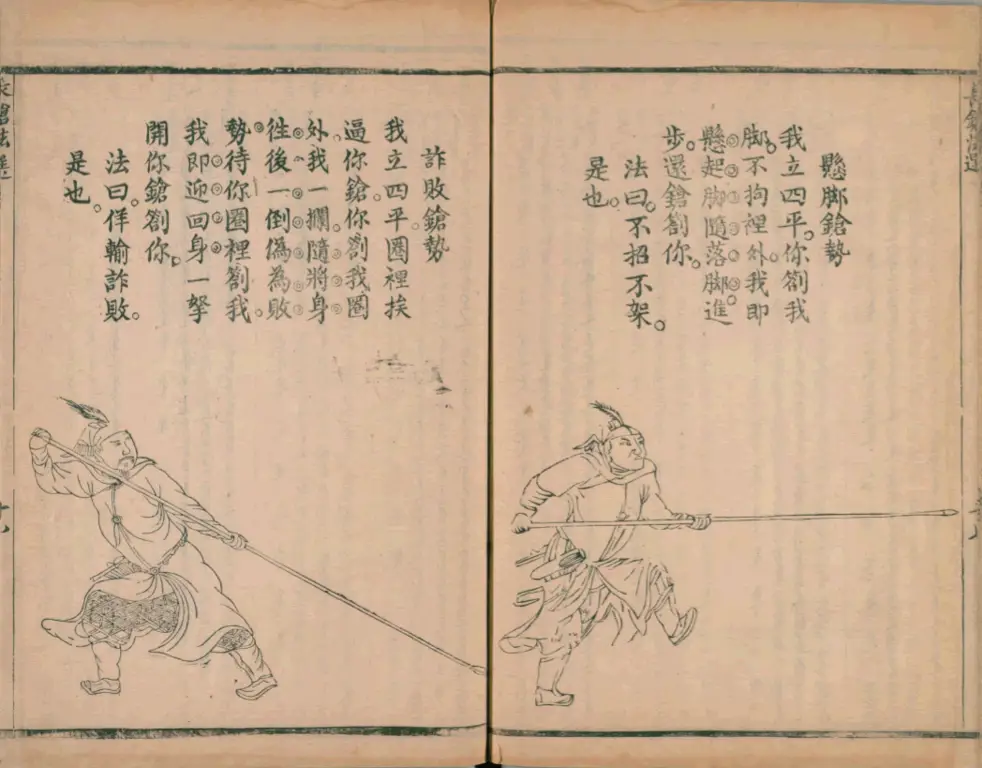 懸脚鎗勢
我立四平。你劄我
脚。不拘裡外。我即
懸起脚隨落脚進
步。還鎗劄你。
法曰。不招不架。
是也。
詐敗鎗勢
我立四平圈裡挨
逼你鎗。你劄我圈
外。我一攔隨將身
徃後一倒偽為敗
勢。待你圈裡劄我。
我即迎回身一拏
開你鎗劄你。
法曰。佯輸詐敗。
是也。